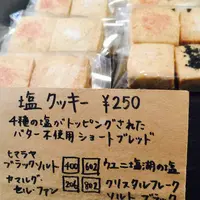 塩クッキー ¥250
4種の塩がトッピングされた
バター不使用ショートブレッド
ヒマラヤ
ブラックソルト
ウユニ塩湖の塩
カマルグ
セル・ファン
クリスタルフレーク
ソルト ブラック